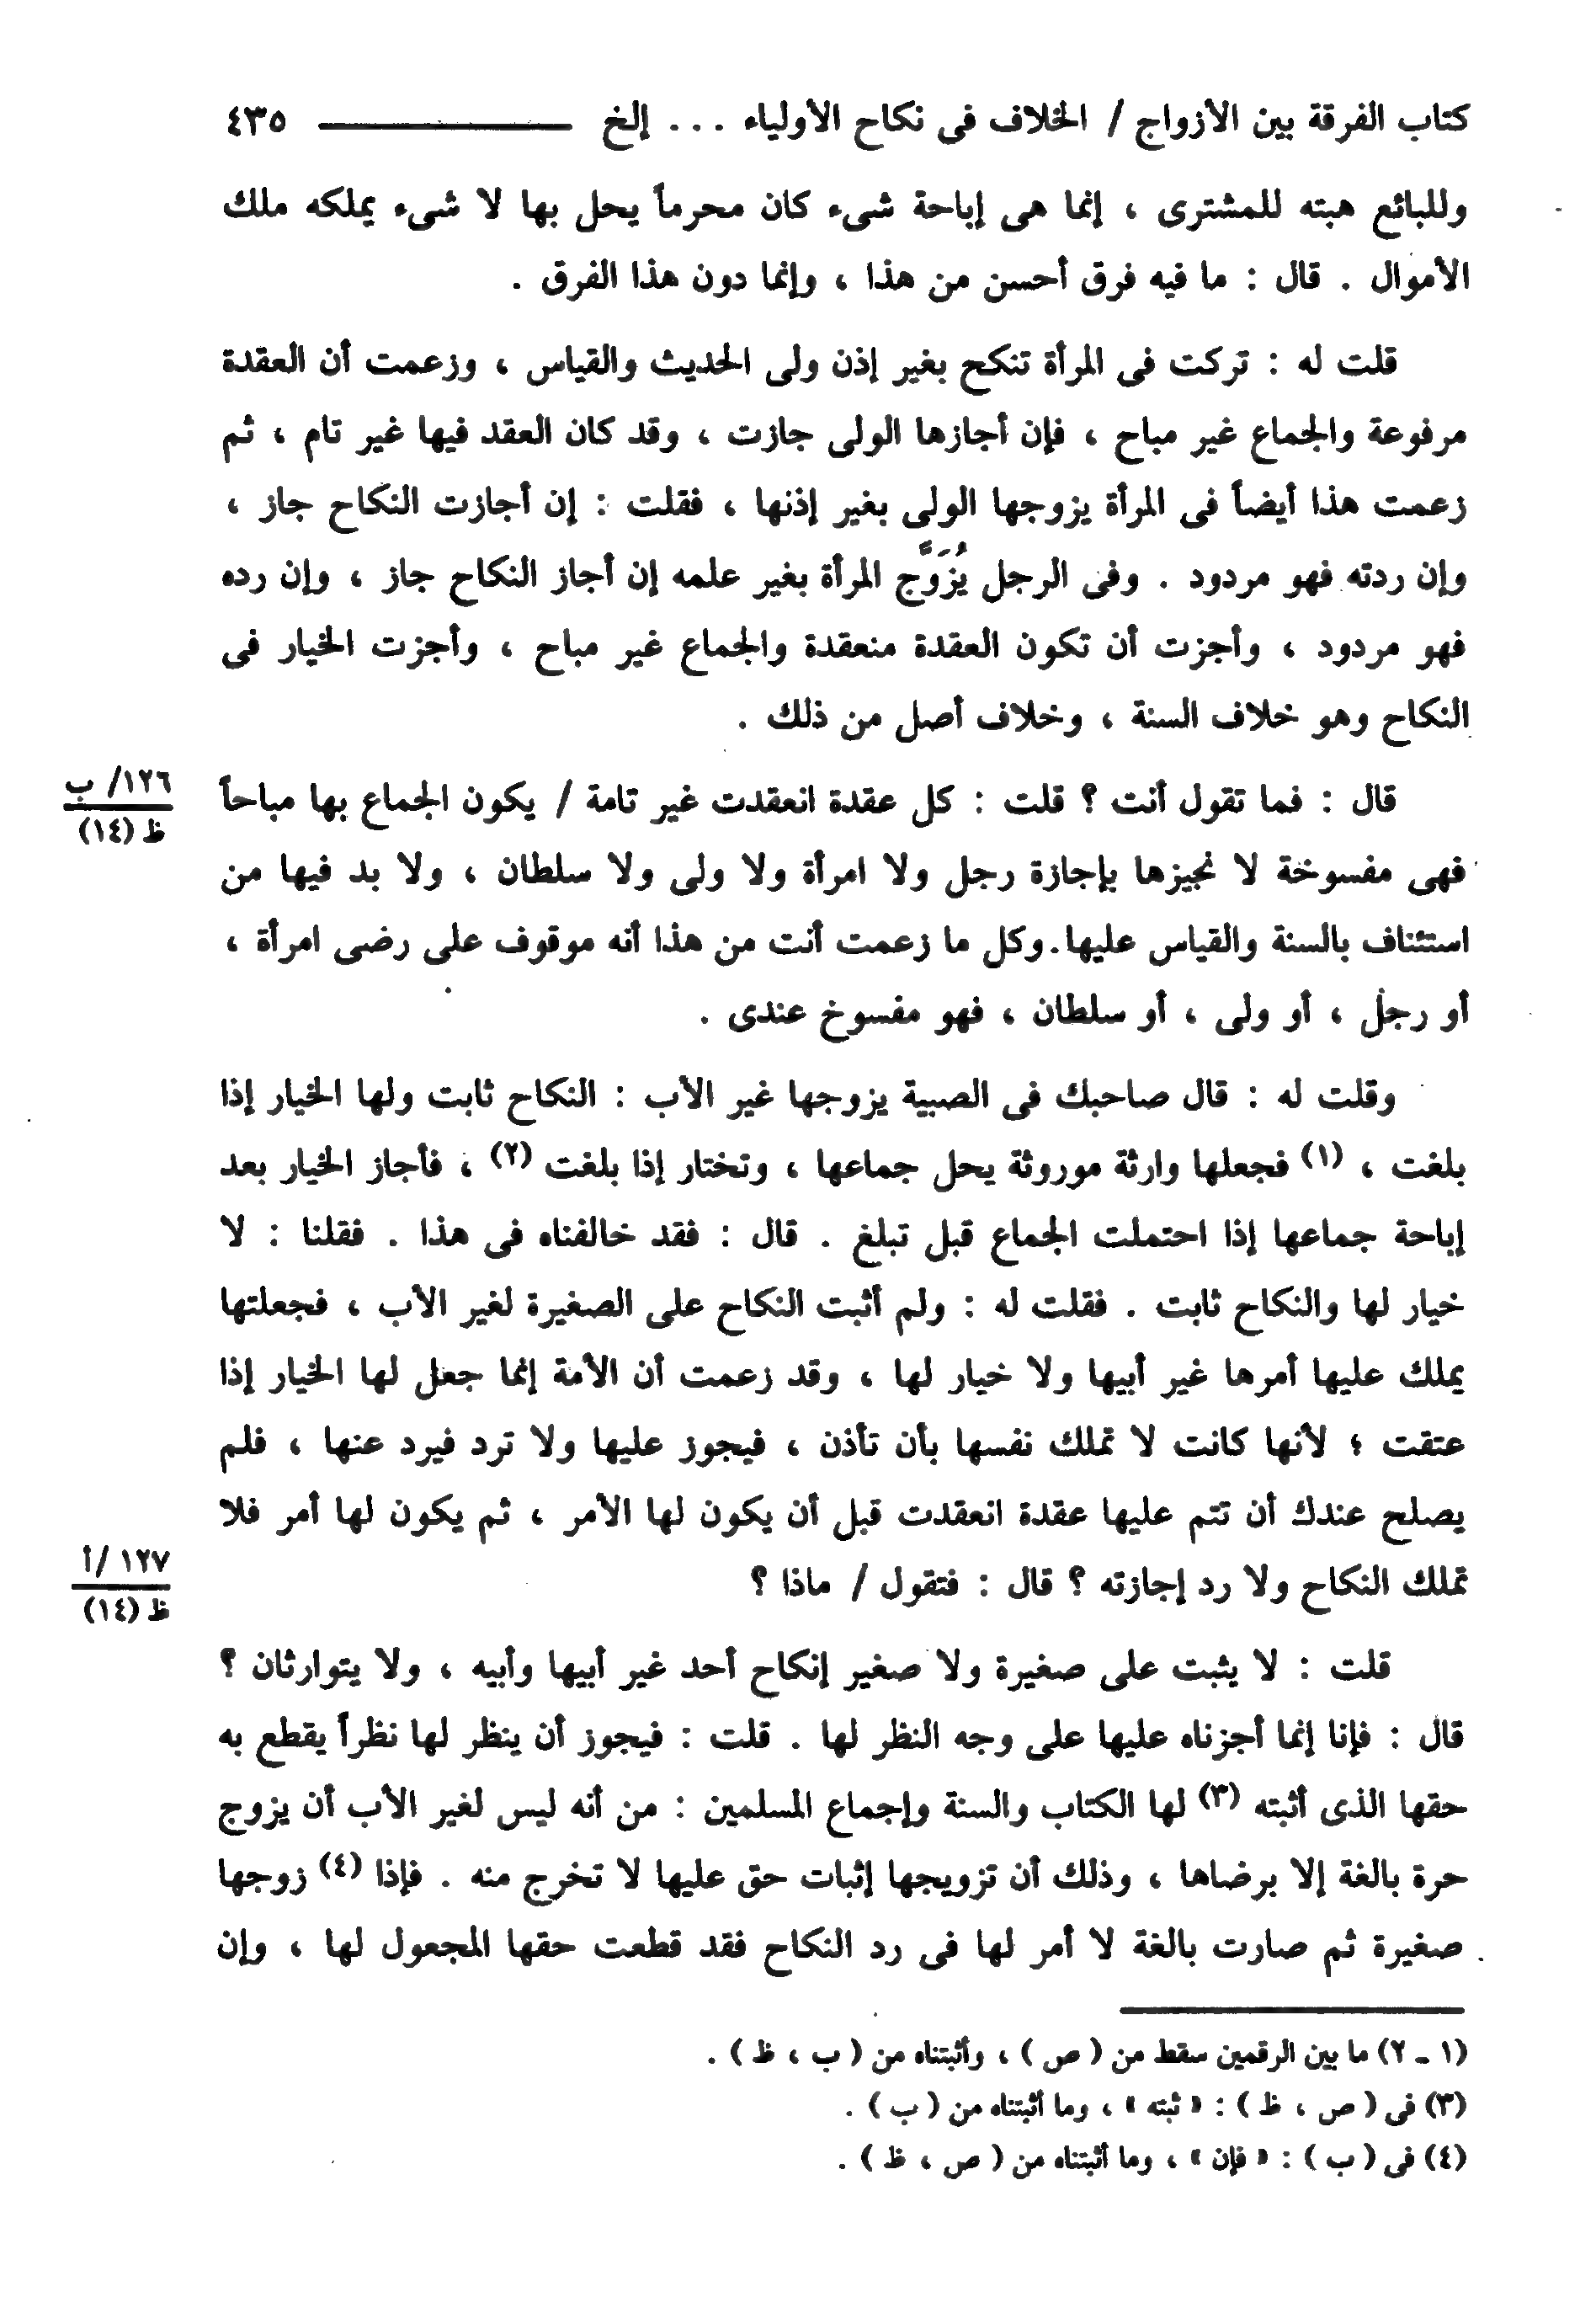 كتاب الفرقة بين الأزواج / الخلاف فى نكاح الأولياء ... إلخ ٤٣٥
وللبائع هبته للمشترى ، إنما هى إباحة شىء كان محرماً يحل بها لا شىء يملكه ملك
الأموال . قال : ما فيه فرق أحسن من هذا ، وإنما دون هذا الفرق .
قلت له : تركت فى المرأة تنكح بغير إذن ولى الحديث والقياس ، وزعمت أن العقدة
مرفوعة والجماع غير مباح ، فإن أجازها الولى جازت ، وقد كان العقد فيها غير تام ، ثم
زعمت هذا أيضاً فى المرأة يزوجها الولى بغير إذنها ، فقلت : إن أجازت النكاح جاز ،
وإن ردته فهو مردود . وفى الرجل يُزَوَّج المرأة بغير علمه إن أجاز النكاح جاز ، وإن رده
فهو مردود ، وأجزت أن تكون العقدة منعقدة والجماع غير مباح ، وأجزت الخيار فى
النكاح وهو خلاف السنة ، وخلاف أصل من ذلك .
قال : فما تقول أنت ؟ قلت : كل عقدة انعقدت غير تامة / يكون الجماع بها مباحاً
١٢٦/ ب
ظ (١٤)
فهى مفسوخة لا نجيزها بإجازة رجل ولا امرأة ولا ولى ولا سلطان ، ولا بد فيها من
استئناف بالسنة والقياس عليها.وكل ما زعمت أنت من هذا أنه موقوف على رضى امرأة ،
أو رجل ، أو ولى ، أو سلطان ، فهو مفسوخ عندى .
وقلت له : قال صاحبك فى الصبية يزوجها غير الأب : النكاح ثابت ولها الخيار إذا
بلغت ، (١) فجعلها وارثة موروثة يحل جماعها ، وتختار إذا بلغت (٢) ، فأجاز الخيار بعد
إباحة جماعها إذا احتملت الجماع قبل تبلغ . قال : فقد خالفناه فى هذا . فقلنا : لا
خيار لها والنكاح ثابت . فقلت له : ولم أثبت النكاح على الصغيرة لغير الأب ، فجعلتها
يملك عليها أمرها غير أبيها ولا خيار لها ، وقد زعمت أن الأمة إنما جعل لها الخيار إذا
عتقت ؛ لأنها كانت لا تملك نفسها بأن تأذن ، فيجوز عليها ولا ترد فيرد عنها ، فلم
يصلح عندك أن تتم عليها عقدة انعقدت قبل أن يكون لها الأمر ، ثم يكون لها أمر فلا
تملك النكاح ولا رد إجازته ؟ قال : فتقول / ماذا ؟
١٢٧ /أ
ظ (١٤)
قلت : لا يثبت على صغيرة ولا صغير إنكاح أحد غير أبيها وأبيه ، ولا يتوارثان ؟
قال : فإنا إنما أجزناه عليها على وجه النظر لها . قلت : فيجوز أن ينظر لها نظراً يقطع به
حقها الذى أثبته (٣) لها الكتاب والسنة وإجماع المسلمين : من أنه ليس لغير الأب أن يزوج
حرة بالغة إلا برضاها ، وذلك أن تزويجها إثبات حق عليها لا تخرج منه . فإذا (٤) زوجها
صغيرة ثم صارت بالغة لا أمر لها فى رد النكاح فقد قطعت حقها المجعول لها ، وإن
(١ ـ ٢) ما بين الرقمين سقط من ( ص ) ، وأثبتناه من ( ب ، ظ ) .
(٣) فى ( ص ، ظ ) : « ثبته » ، وما أثبتناه من ( ب ) .
(٤) فى ( ب ) : « فإن » ، وما أثبتناه من ( ص ، ظ ) .